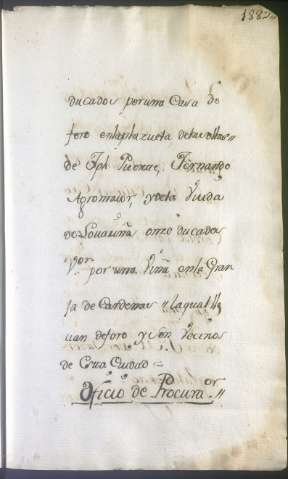 188
ducados por una Casa de
foro enla plazueta delas ollas
de Jph Puente, Fernando
Agromaior, y dela Viuda
de once ducados
por una Viña en le Gran
Ja de Cardenas laqual lle
uan deforo y son vecinos
de Esta Ciudad =
Oficio de Procuraor